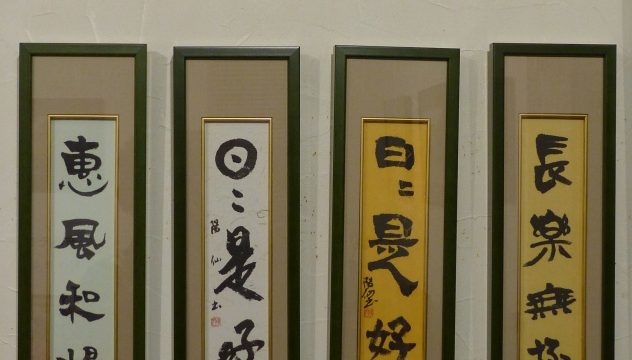 惠風和暢
日々是好
陽仙書
日々是好
陽仙書
長樂無極